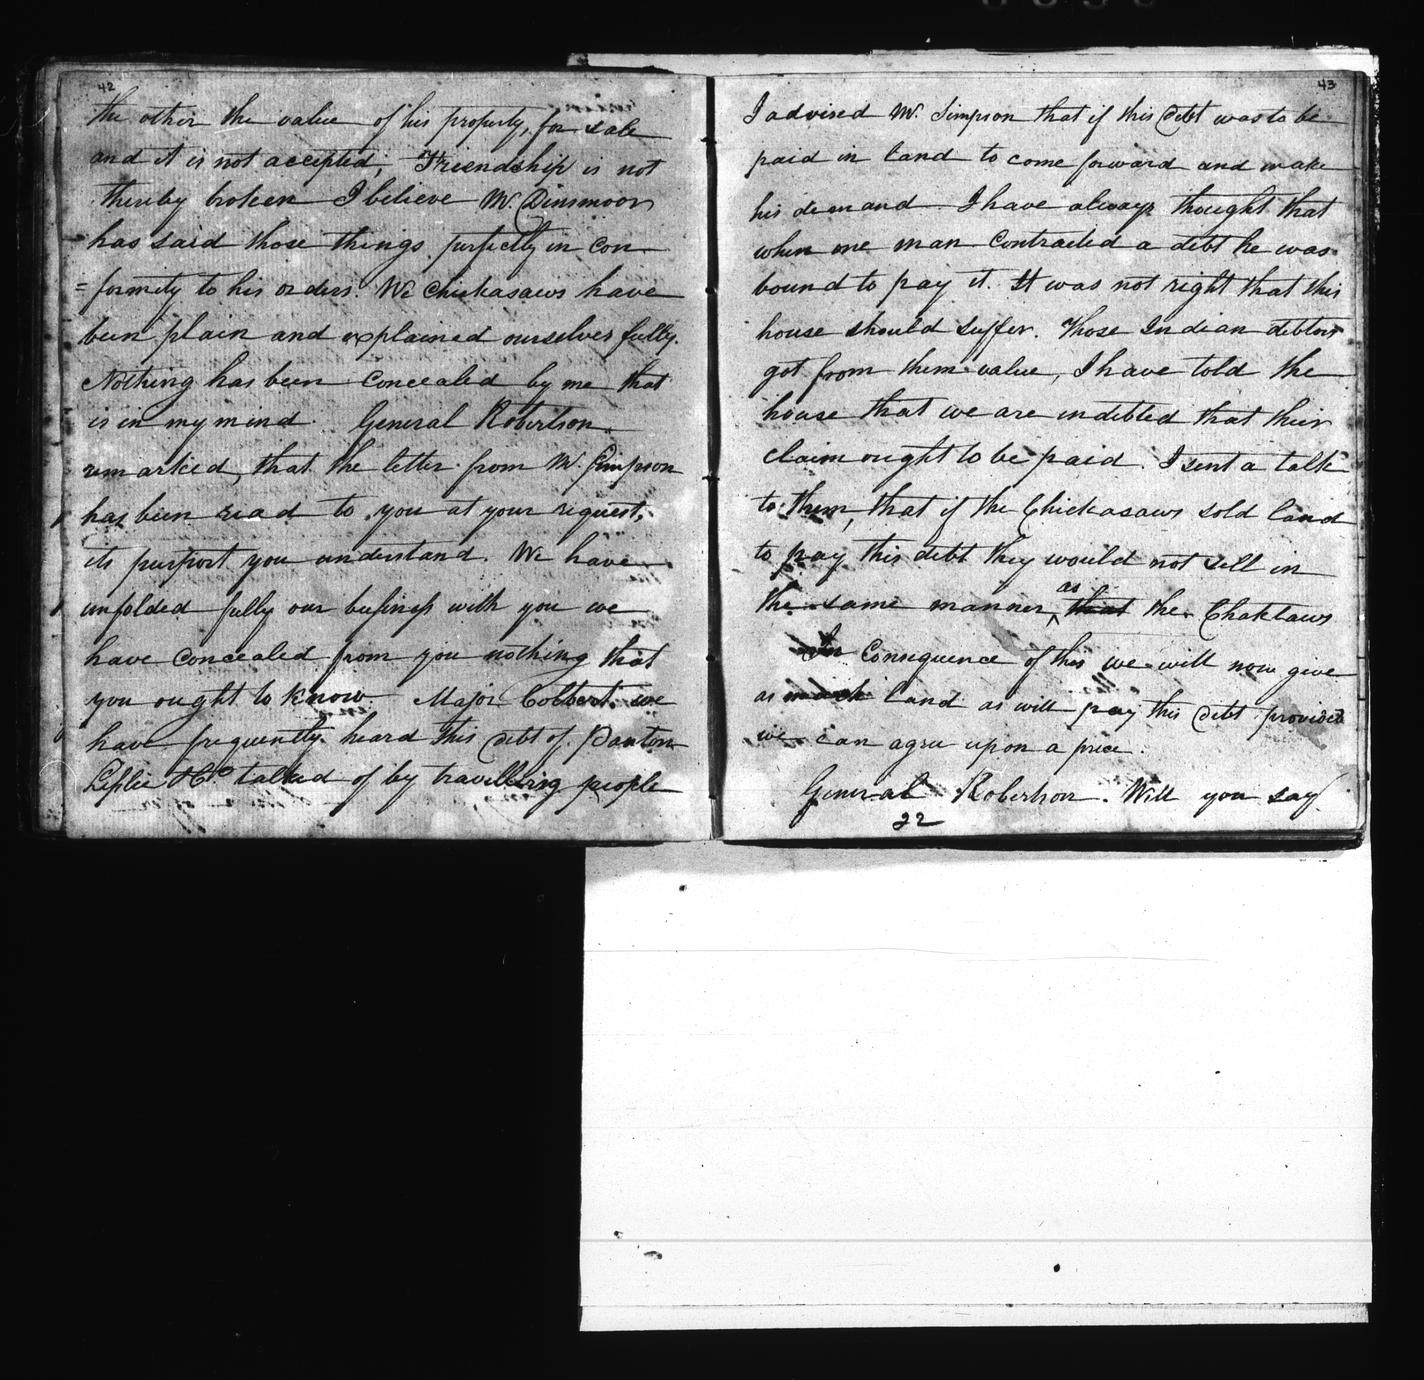 42
the other the value of his property, for sale
and it is not accepted, Friendship is not
thereby broken I believe Mr. Dinsmoor
has said those things perfectly in con
=formity to his orders. We Chickasaws have
been plain and explained ourselves fully.
Nothing has been Concealed by me that
is in my mind. General Robertson
remarked, that the letter from Mr. Simpson
has been read to you at your request,
its purport you understand. We have
unfolded fully our business with you we
have Concealed from you nothing that
you ought to know Major Colbert, we
have frequently heard this debt of Panton
Leslie & Co talked of by travelling people
43
I advised Mr. Simpson that if this Debt was to be
paid in land to come forward and make
his demand. I have always thought that
when one man Contracted a debt he was
bound to pay it. It was not right that this
house should suffer. Those Indian debtors
got from them value, I have told the
house that we are indebted that their
claim ought to be paid. I sent a talk
to them, that if the Chickasaws sold land
to pay this debt they would not sell in
the same manner, as that the Chaktaws
In Consequence of this we will now give
as much land as will pay this debt provided
we can agree upon a price.
General Robertson. Will you say
22